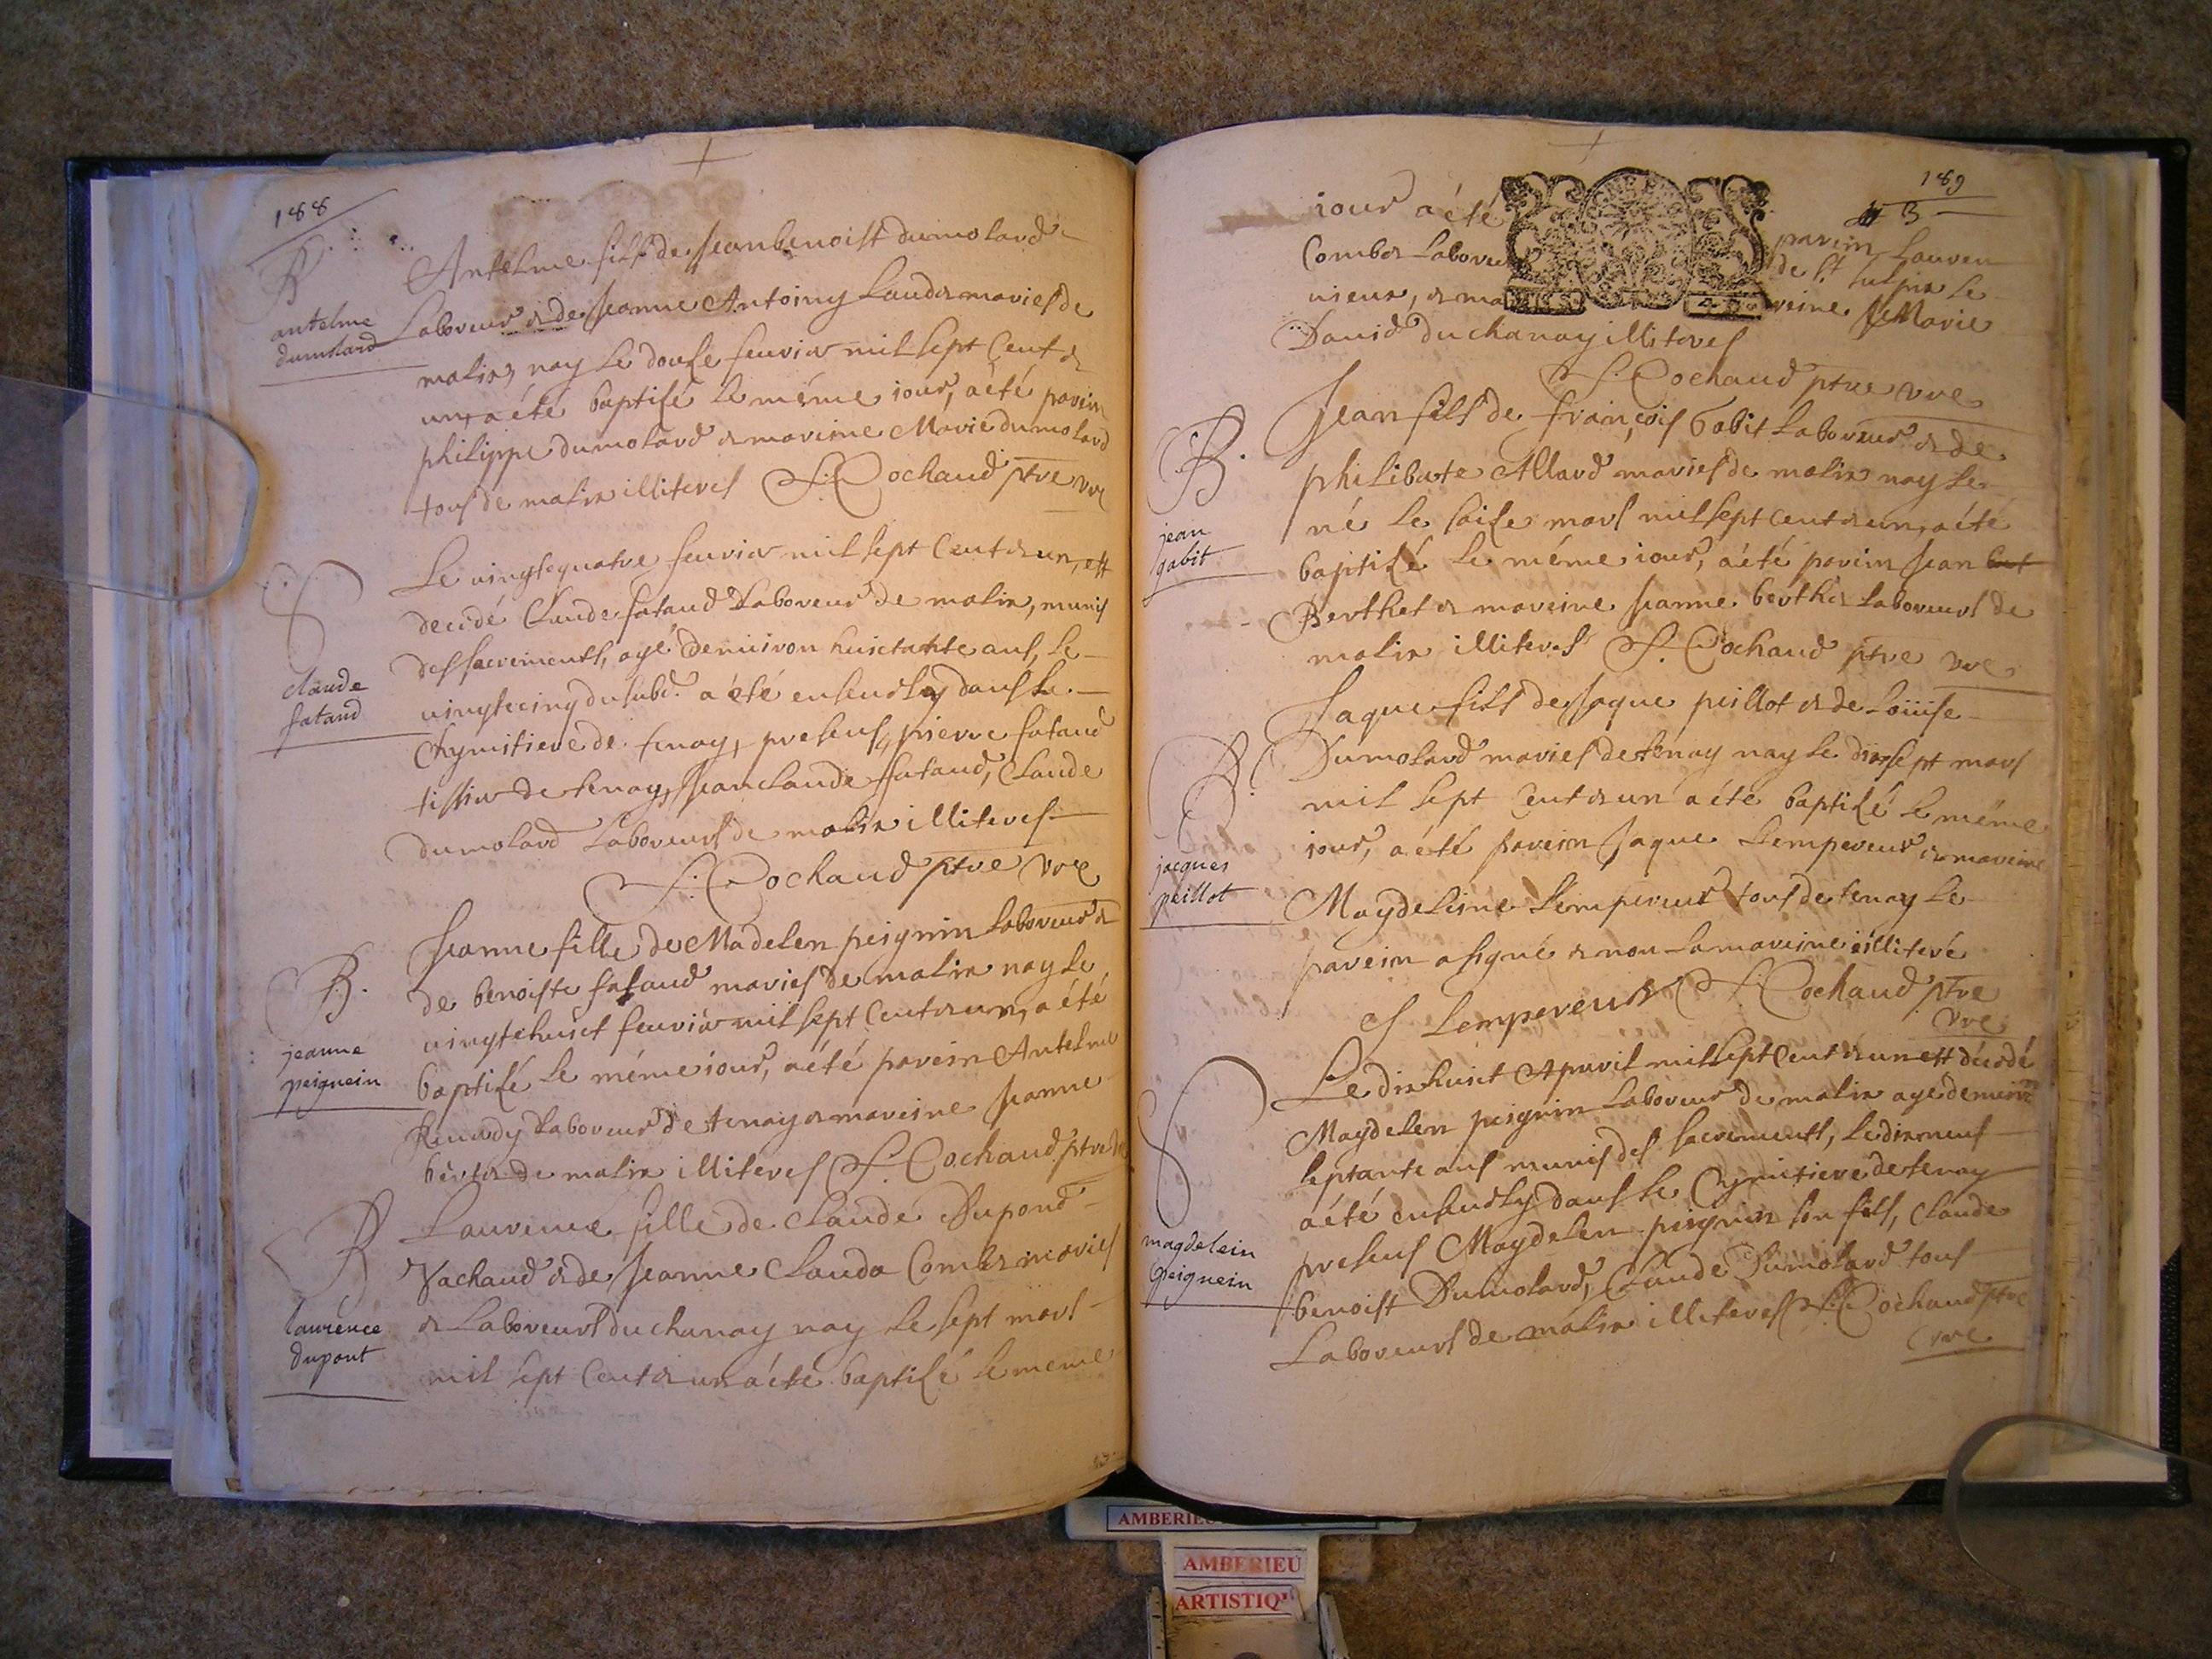 188
B
antelme
dumolard
Antelme fils de Jean benoist dumolard
Laboreur & de Jeanne Antoiny Lander mariés de
malix, nay le douse feuvier mil sept Cent &
un, a été baptisé le même iour, a été parein
philippe dumolard & mareine Marie dumolard
tous de malix illiterés S: Cochaud ptre vre
S
claude
fataud
Le vingtequatre feuvier mil sept Cent & un, est
decedé Claude fataud Laboreur de malix, munis
des sacrements, agé denuiron huictante ans, le
vingtecinq dusubd. a été enseuely dans le
Chymitiere de tenay, presens, pierre fataud
tissier de tenay, Jean claude fataud, Claude
dumolard Laboreurs de malix illiterés
S: Cochaud ptre vre
B.
jeanne
peignein
Jeanne fille de Madelen peignin Laboreur &
de benoiste fataud mariés de malix nay le
vingtehuict feuvier mil sept Cent & un, a été
baptisé le même iour, a été parein Antelme
Laboreur de tenay & mareine Jeanne
de malix illiterés S. Cochaud ptre
B
laurence
dupont
Laurence fille de Claude Dupond
Vachaud & de Jeanne Clauda Combet mariés
& Laboreurs du chanay nay le sept mars
mil sept Cent & un a été baptisé le meme
189
3
iour a été parein Lauren
Combet Laboreur de St Sulpix le
uieux, & mareine Marie
David du chanay illiterés
S. Cochaud ptre vre
B.
jean
gabit
Jean fils de françois Gabit Laboreur & de
philiberte Allard mariés de malix nay le
né le saise mars mil sept Cent & un, a été
baptisé le même iour, a été parein Jean bert
Berthet & mareine Jeanne berthet Laboreurs de
malix illiterés S. Cochaud ptre vre
B.
jacques
peillot
Jaque fils de Jaque peillot & de Loüise
Dumolard mariés de tenay nay le dixsept mars
mil sept Cent & un a été baptisé le même
iour, a été parein Jaque Lempereur & mareine
Magdeleine Lempereur tous de tenay le
parein a signé & non la mareine illiteré
J Lempereur S. Cochaud ptre
vre
S
magdelein
peignein
Le dix huict Apvril mil sept Cent & un est décedé
Magdelen peignin Laboreur de malix agé denuiron
septante ans munis des sacrements, le dixneuf
a été enseuely dans le Cymitiere de tenay
presens Magdelen peignin son fils, Claude
benoist Dumolard, Claude Dumolard tous
Laboreurs de malix illiterés S. Cochaud ptre
vre
AMBERIEU
AMBERIEU
ARTISTIQ